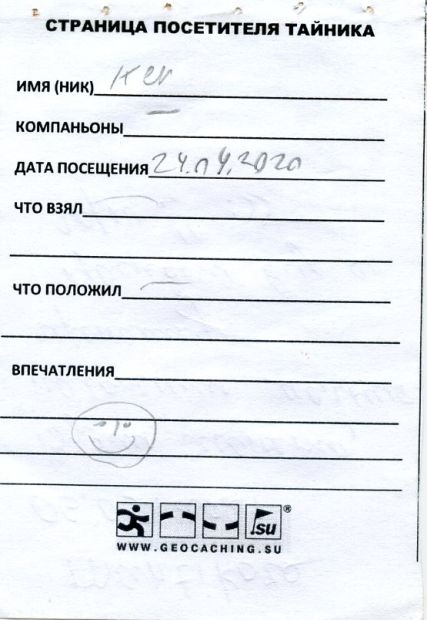 СТРАНИЦА ПОСЕТИТЕЛЯ ТАЙНИКА
ИМЯ (НИК)
КОМПАНЬОНЫ —
ДАТА ПОСЕЩЕНИЯ 24.04.2020
ЧТО ВЗЯЛ
ЧТО ПОЛОЖИЛ —
ВПЕЧАТЛЕНИЯ
.su®
WWW.GEOCACHING.SU